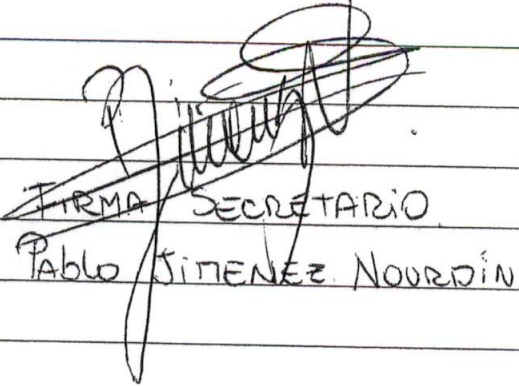 FIRMA SECRETARIO
PABLO JIMENEZ NOURDÍN